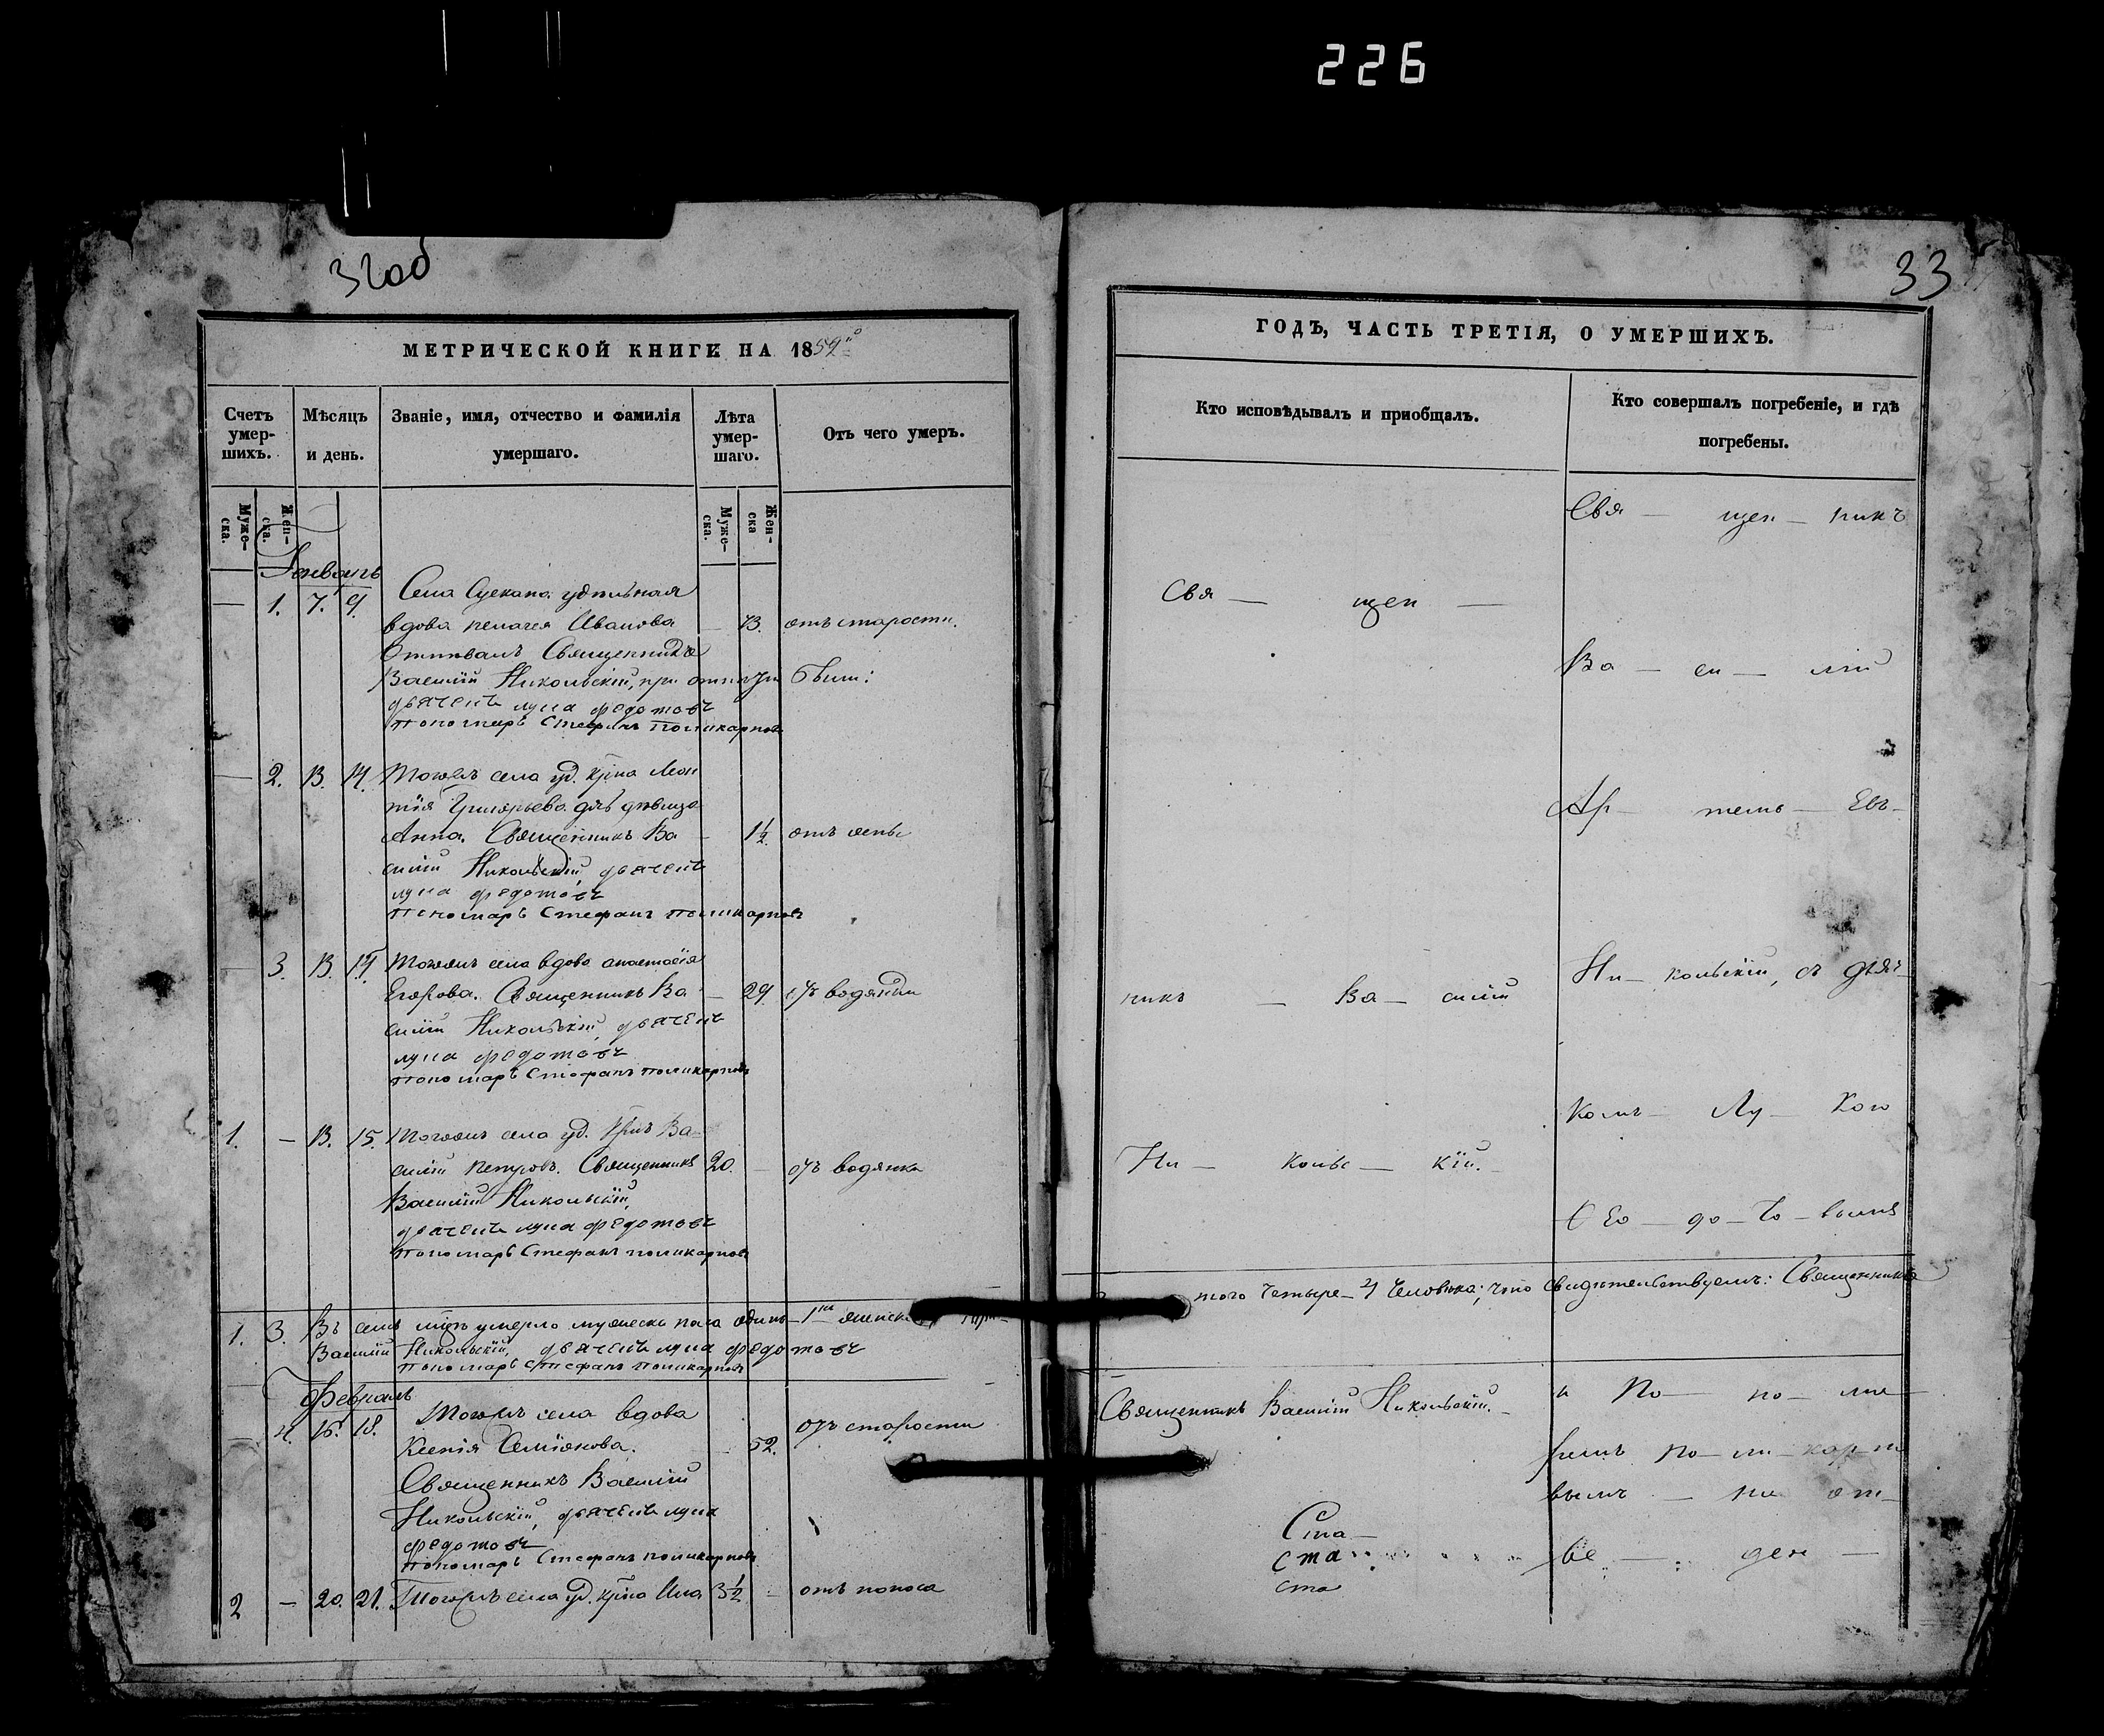 226
32об
МЕТРИЧЕСКОЙ КНИГИ НА 1859й
Счетъ умер-шихъ.
Мѣсяцъ и день.
Званіе, имя, отчество и фамилія умершаго.
Лѣта умер-шаго.
Отъ чего умеръ.
Муже-ска. Жен-ска.
Муже-ска. Жен-ска
Январь
— 1. 7. 9. Села удѣльная
вдова Пелагея Иванова — 73. отъ старости.
Отпѣвалъ Священникъ
Василій Никольскій, при были:
дьячекъ лука федотовъ
пономарь Стефанъ поликарповъ
— 2. 13. 14. Тогожъ села уд. кр-на Леон
тія Григорьева дѣвица
Анна. Священникъ Ва — 1½ отъ оспы
силій Никольскій дьячекъ
лука федотовъ
пономарь Стефанъ поликарповъ
— 3. 13. 14. Тогожъ села вдова анастасія
Егорова. Священникъ Ва — 29 отъ водянки
силій Никольскій дьячекъ
лука федотовъ
пономарь Стефанъ поликарповъ
1. — 13. 15. Тогожъ села уд. кр-нъ Ва-
силій Петровъ. Священникъ 20. — отъ водянки
Василій Никольскій,
дьячекъ лука федотовъ
пономарь Стефанъ поликарповъ
1. 3. Въ семъ умерло мужеска пола одинъ — 1 женска
Василій Никольскій, дьячекъ лука федотовъ
пономарь стефанъ поликарповъ
Февраль
— 4. 16. 18. Тогожъ села вдова
Ксенія Семіонова. — 52. отъ старости
Священникъ Василій
Никольскій, дьячекъ лука
федотовъ
пономарь Стефанъ поликарповъ
2 — 20. 21. Тогожъ села уд. кр-на 3½ — отъ поноса
33
ГОДЪ, ЧАСТЬ ТРЕТІЯ, О УМЕРШИХЪ.
Кто исповѣдывалъ и приобщалъ.
Кто совершалъ погребеніе, и гдѣ погребены.
Свя — щен — никъ
Свя — щен —
Ва — си — лій
никъ — Ва — силій
Ни — кольскій, съ дьяч-
комъ — Лу — кою
Ни — кольс — кій.
Ѳео — до — то — вымъ
того четыре — 4 человѣка; что свидѣтельствуемъ: Священникъ
Священникъ Василій Никольскій.
и По — но — ма
ремъ По — ли — карпо
вымъ — на от-
Ста —
ста
ста
ве — ден —